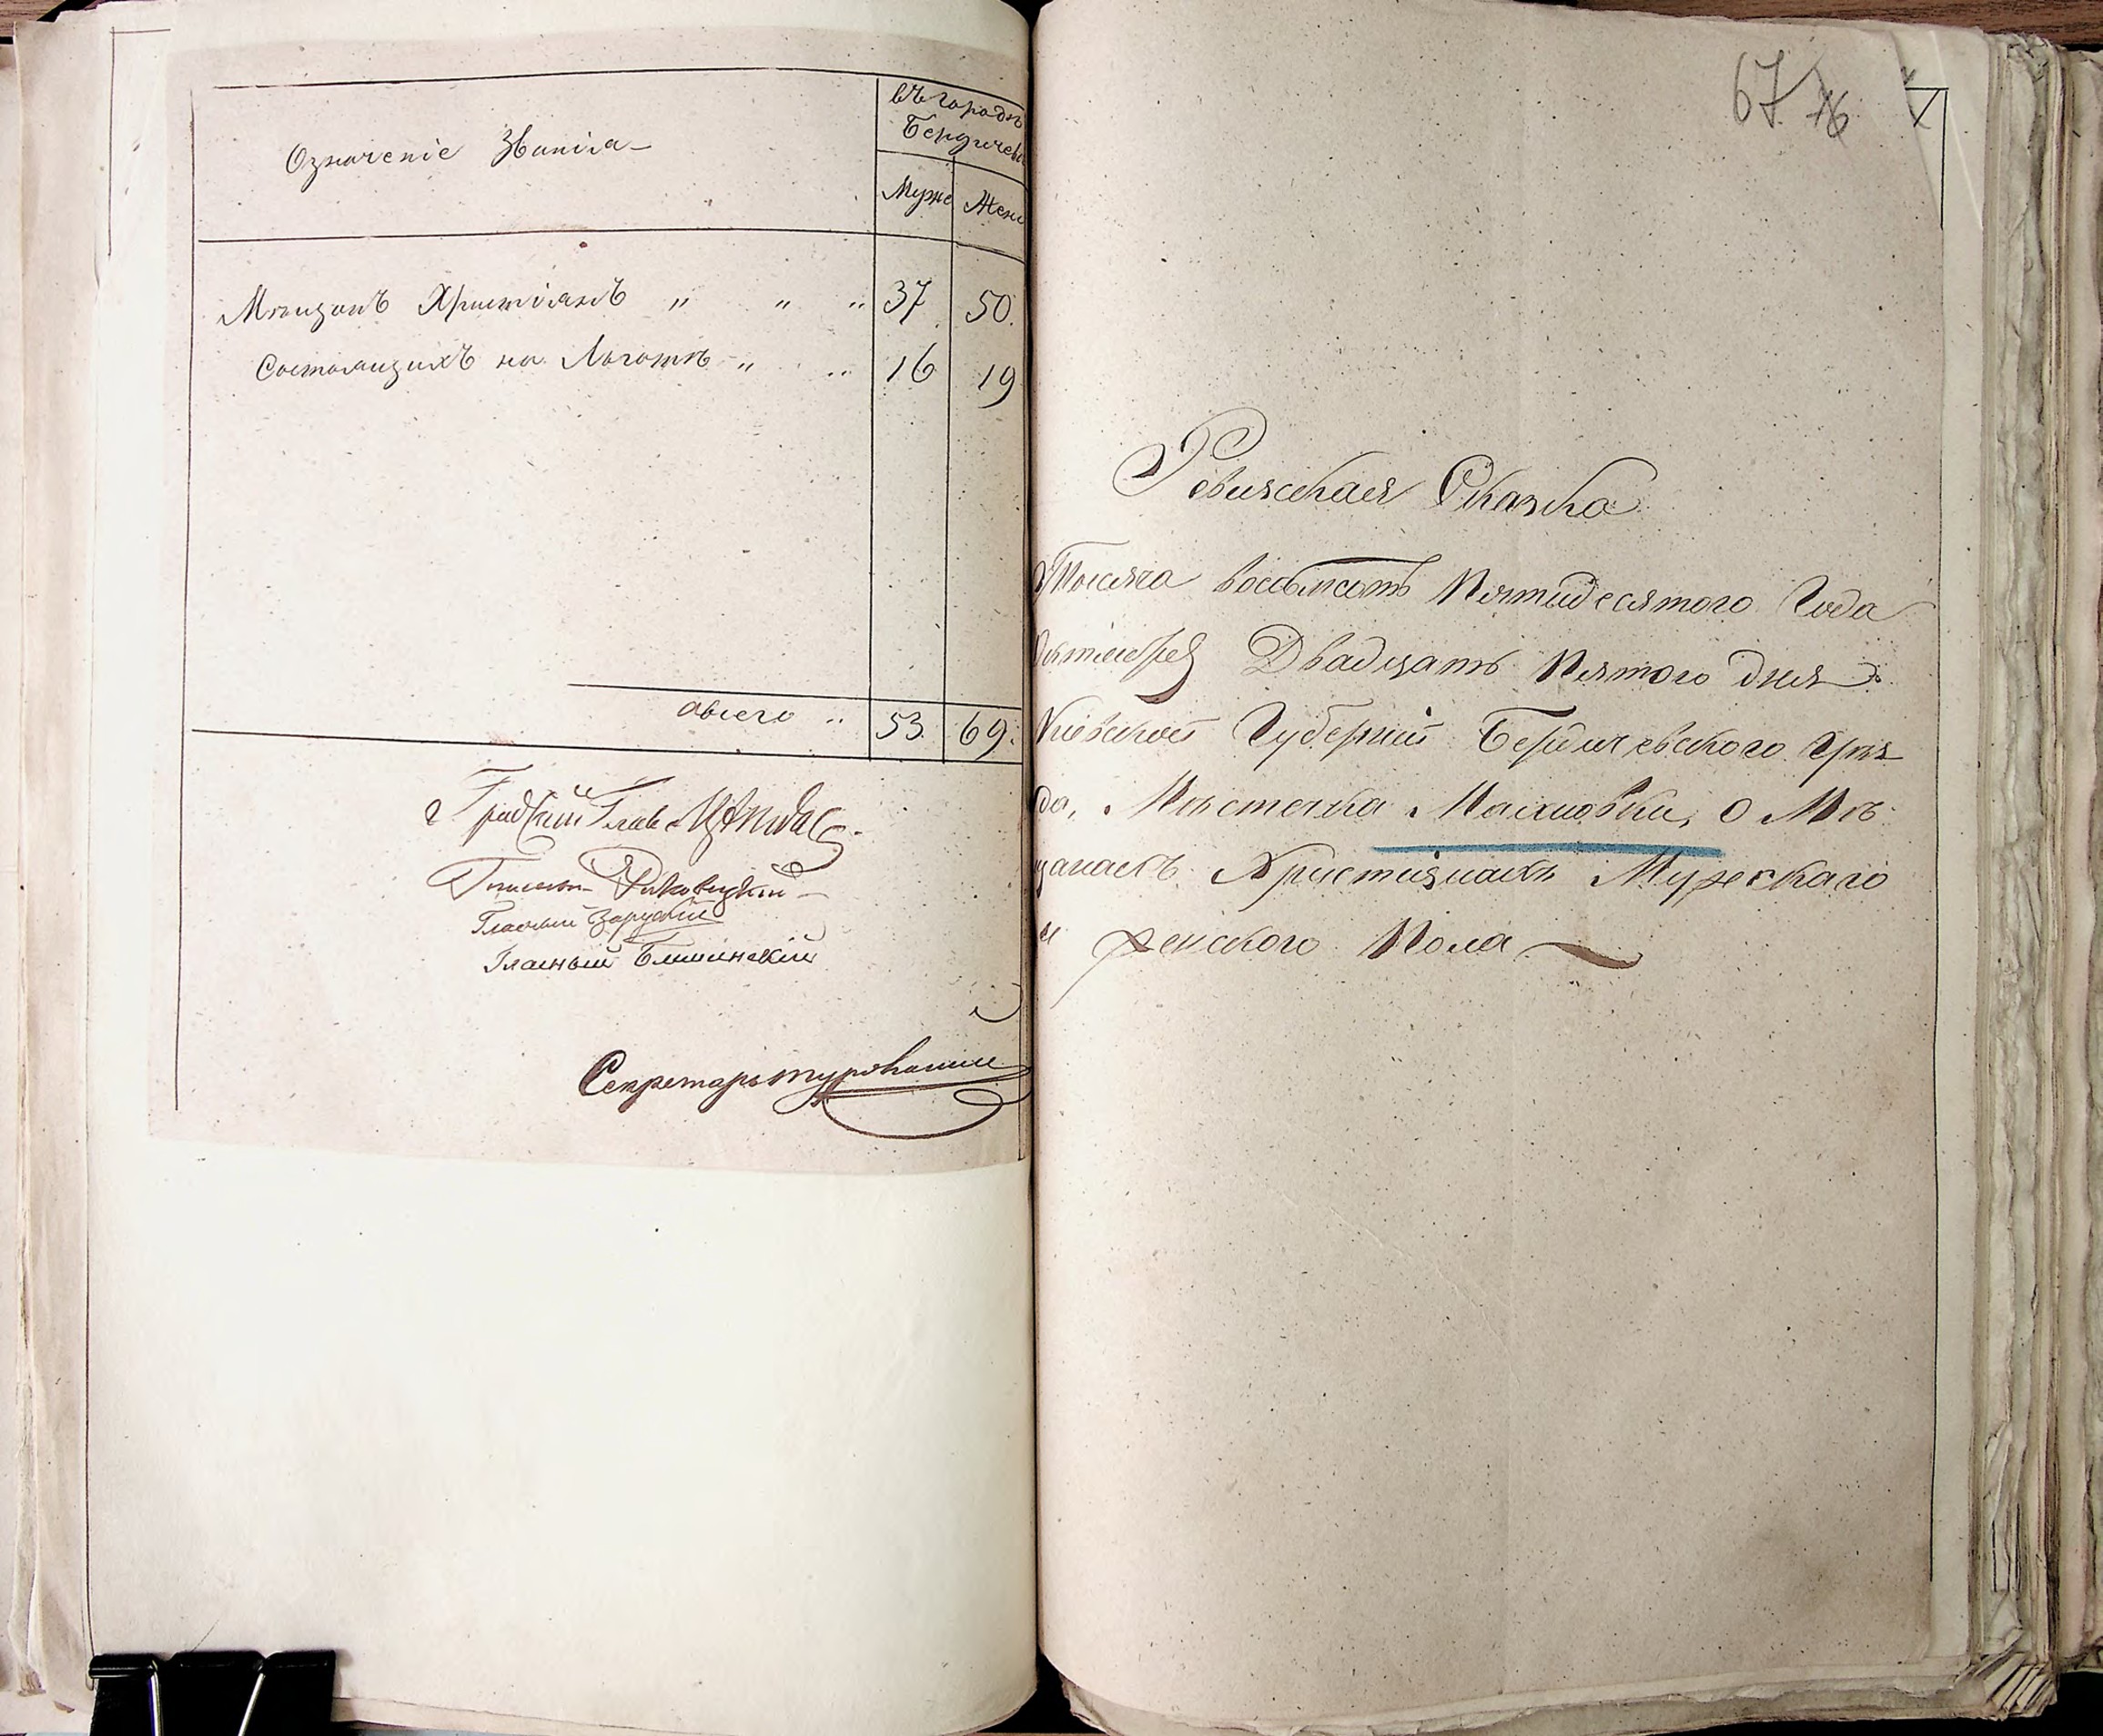 Означеніе Званія
въ городѣ
Бердичевѣ
Муже Жене
Мѣщанъ Христіянъ „ „ „ 37 50.
Состоящихъ на Льготѣ „ „ 16 19
Авсего „ 53. 69.
Градскій Глава
Гласный Зарудній
Гласный
Секретарь
67 76
Ревизская Сказка
Тысяча восемьсотъ Пятидесятого Года
Октября Двадцать Пятого дня
Кіевской Губерніи Бердичевского Уѣз
да, Мѣстечка Махновки, О Мѣ
щанахъ Христіянахъ Мужескаго
и женского Пола